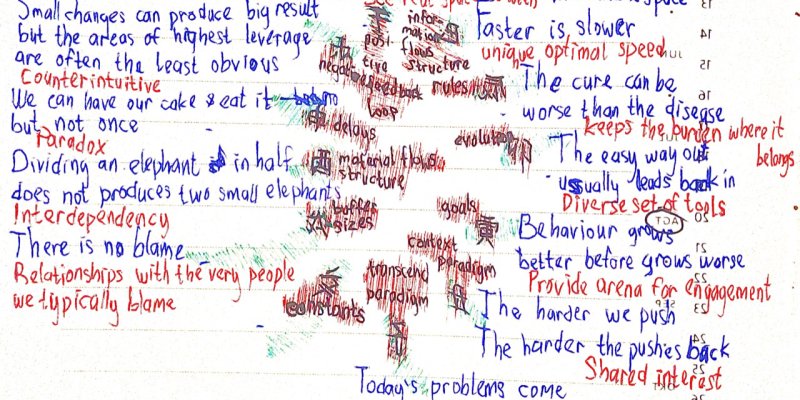 Small changes can produce big result
but the areas of highest leverage
are often the least obvious
Counterintuitive
We can have our cake & eat it
but not once
Paradox
Dividing an elephant in half
does not produces two small elephants
Interdependency
There is no blame
Relationships with the very people
we typically blame
infor-
mation
flows
structure
posi-
tive
negative
feedback
loop
rules
delays
evolution
material flows
structure
buffer
sizes
goals
context
paradigm
transcend
paradigm
constants
Faster is slower
unique optimal speed
The cure can be
worse than the disease
keeps the burden where it
belongs
The easy way out
usually leads back in
Diverse set of tools
Behaviour grows
better before grows worse
Provide arena for engagement
The harder we push
The harder the pushies back
Shared interest
Today's problems come
13
14
15
16
20
21
22
23
24
25
26